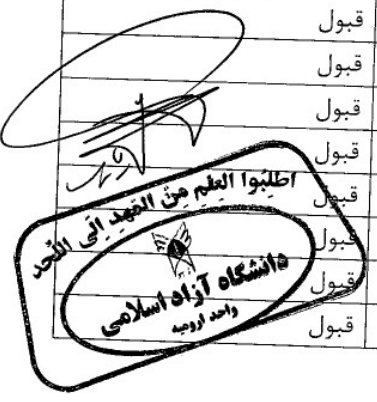 قبول
قبول
قبول
قبول
قبول
قبول
قبول
قبول
اطلبوا العلم من المهد الی اللحد
دانشگاه آزاد اسلامی
واحد ارومیه